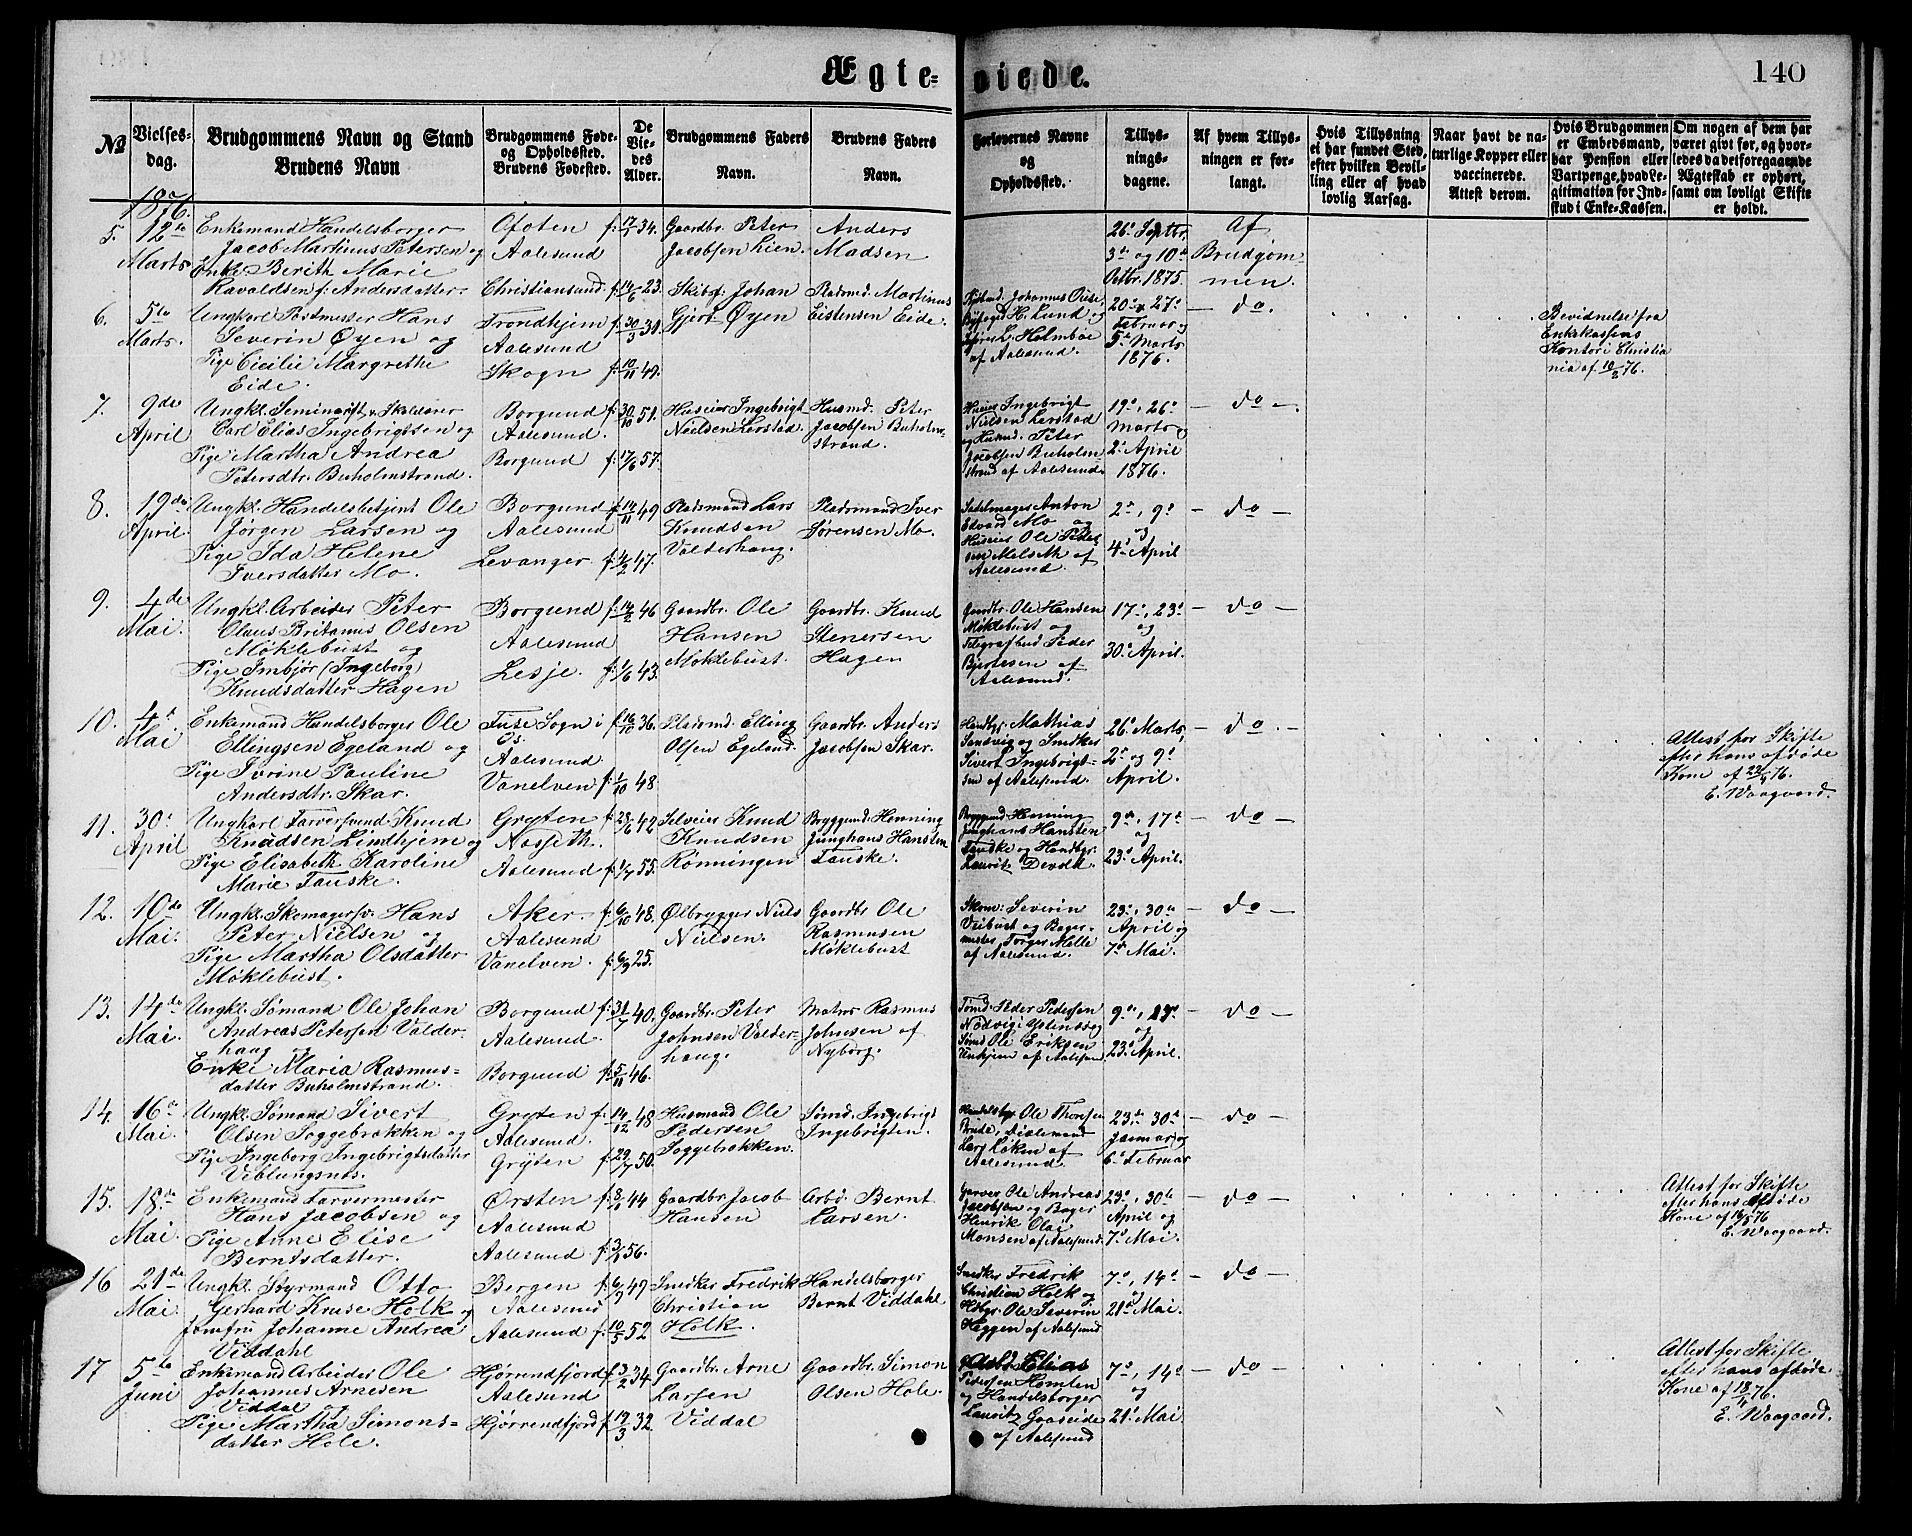 Ægte-viede.
140
№
Vielses-dag.
Brudgommens Navn og Stand
Brudens Navn
Brudgommens Føde- og Opholdssted.
Brudens Fødested.
De Viedes Alder.
Brudgommens Faders Navn.
Brudens Faders Navn.
Forlovernes Navne og Opholdssted.
Tillysningsdagene.
Af hvem Tillysningen er forlangt.
Hvis Tillysning ei har fundet Sted, efter hvilken Bevilling eller af hvad lovlig Aarsag.
Naar havt de naturlige Kopper eller vaccinerede. Attest derom.
Hvis Brudgommen er Embedsmand, har Pension eller Vartpenge, hvad Legitimation for Indskud i Enke-Kassen.
Om nogen af dem har været givt før, og hvorledes da det foregaaende Ægteskab er ophørt, samt om lovligt Skifte er holdt.
1876.
5. 12te Marts
Enkemand Handelsborger
Jacob Martinus Petersen og
Enke Berith Marie
Ravaldsen f. Andersdatter.
Ofoten
Aalesund
Christiansund
f. 17/7 34.
f. 14/6 23.
Gaardbr. Peter
Jacobsen Lien.
Anders
Madsen
26de Septbr.
3die og 10de
Octbr. 1875.
Af
Brudgom-
men.
6. 5te Marts.
Ungkarl Postmester Hans
Severin Øyen og
Pige Cicilie Margrethe
Eide.
Trondhjem
Aalesund
Skogn
f. 30/3 31.
f. 10/11 49.
Skibsf. Johan
Gjert Øyen
Pladsmd. Martinus
Eistensen Eide.
Byfoged H. Lund og
L. Holmboe
af Aalesund.
20de, 27de
Februar og
5te Marts
1876.
— do.
Bevidnelse fra
Enkekassens
Kontor i Christia
nia af 10/2 76.
7. 9de April
Ungkl. Seminarist, Skolelærer
Carl Elias Ingebrigtsen og
Pige Martha Andrea
Petersdtr. Buholmstrand.
Borgund
Aalesund.
Borgund
f. 30/10 51.
f. 17/6 57.
Huseier Ingebrigt
Nielsen Lerstad.
Husmd. Peter
Jacobsen Buholm-
strand.
Huseier Ingebrigt
Nielsen Lerstad
og Husmd. Peter
Jacobsen Buholm
strand af Aalesund.
19de, 26de
Marts og
2den April
1876.
— do —.
8. 19de April.
Ungkl. Handelsbetjent Ole
Jørgen Larsen og
Pige Ida Helene
Iversdatter Mo.
Borgund
Aalesund
Levanger.
f. 14/11 49
f. 4/2 47.
Pladsmand Lars
Knudsen
Valderhaug.
Pladsmand Iver
Sørensen Mo.
Sadelmager Anton
Edvard Mo og
Huseier Ole Peder
sen Melseth af
Aalesund.
2den, 9de
og
4de April
— do —
9. 4de Mai.
Ungkl. Arbeider Peter
Claus Britanus Olsen
Møklebust og
Pige Imbjør (Ingeborg)
Knudsdatter Hagen
Borgund
Aalesund
Lesje.
f. 14/2 46
f. 1/6 43.
Gaardbr. Ole
Hansen
Møklebust.
Gaardbr. Knud
Stenersen
Hagen
Gaardbr. Ole Hansen
Møklebust og
Telegrafbud Peder
af
Aalesund.
17de, 23de
og
30de April.
— do —
10. 4de Mai
Enkemand Handelsborger Ole
Ellingsen Egeland og
Pige Ivrine Pauline
Andersdtr. Skar.
Fuse Sogn i
Os.
Aalesund
Vanelven
f. 16/10 36.
f. 1/10 48.
Pladsmd. Elling
Olsen Egeland.
Gaardbr. Anders
Jacobsen Skar.
Handbgr. Mathias
Sandvig og Snedker
Sivert Ingebrigt-
sen af Aalesund.
26de Marts,
2den og 9de
April.
— do —
Attest for Skifte
efter hans afdøde
Kone af 22/4 76.
E. Waagaard.
11. 30te April
Ungkarl Farversvend Knud
Knudsen Lindhjem og
Pige Elisabeth Karoline
Marie Tanske.
Gryten
Nosseth.
Aalesund
f. 28/6 42
f. 1/7 55.
Selveier Knud
Knudsen
Rønningen
Bryggemd. Henning
Junghans Hansten
Tanske.
Bryggemd. Henning
Junghans Hansten
Tanske og Handbgr.
Lauritz Devold.
9de, 17de
og
23de April.
— do —
12. 10de Mai.
Ungkl. Skomagersv. Hans
Peter Nielsen og
Pige Martha Olsdatter
Møklebust.
Aker.
Aalesund
Vanelven.
f. 6/10 48.
f. 6/9 25.
Ølbrygger Niels
Nielsen.
Gaardbr. Ole
Rasmusen
Møklebust
Skom: Severin
Veibust og Bager-
mester Torger Melle
af Aalesund.
23de, 30te
April og
7de Mai.
— do —
13. 14de Mai.
Ungkl. Sømand Ole Johan
Andreas Petersen Valder-
haug og
Enke Maria Rasmus-
datter Buholmstrand.
Borgund
Aalesund.
Borgund
f. 31/7 40.
f. 5/11 46.
Gaardbr. Peter
Johnsen Valder-
haug.
Matros Rasmus
Johnsen af
Nyborg.
Tømd. Peder Pedersen
Nødvig i
Sømd Ole Eriksen
af Aalesund
9de, 17de
og
23de April.
— do —
14. 16de Mai.
Ungkl. Sømand Sivert
Olsen Soggebrokken og
Pige Ingeborg Ingebrigtsdatter
Veblungsnes.
Gryten
Aalesund.
Gryten
f. 14/12 48
f. 29/7 50.
Husmand Ole
Pedersen
Soggebrokken.
Sømd. Ingebrigt
Ingebrigten.
Handelsbgr Ole Thorsen
Brude, Dislemand
Lars Løken af
Aalesund
23de, 30te
Januar og
6te Februar
— do —
15. 18de Mai.
Enkemand Farvermester
Hans Jacobsen og
Pige Anne Elise
Berntsdatter.
Ørsten
Aalesund
Aalesund
f. 44
f. 56.
Gaardbr. Jacob
Hansen
Arbd. Bernt
Larsen.
Garver Ole Andreas
Jacobsen og Bager
Henrik Olai
Monsen af Aalesund.
23de, 30te
April og
7de Mai.
— do —
Attest for Skifte
efter hans afdøde
Kone af 16/5 76
E. Waagaard.
16 21de Mai
Ungkl. Styrmand Otto
Gerhard Kruse Holk og
Jomfru Johanne Andrea
Viddahl
Bergen
Aalesund
Aalesund
f. 6/9 49
f. 10/5 52
Snedker Fredrik
Christian
Holk.
Handelsborger
Bernt Viddahl
Snedker Fredrik
Christian Holk og
Hbgr. Ole Severin
Heggen af Aalesund
7de, 14de
og
21de Mai.
— do —
17 5te Juni
Enkemand Arbeider Ole
Johannes Arnesen
Viddal og
Pige Martha Simons-
datter Hole.
Hjørundfjord
Aalesund
Hjørrendfjord
f. 3/2 34
f. 19/3 32.
Gaardbr. Arne
Larsen
Viddal
Gaardbr. Simon
Olsen Hole.
Arbd. Elias
Pedersen Homlen
og Handelsborger
Lauritz Gaaseide
af Aalesund
7de, 14de
og
21de Mai.
— do —
Attest for Skifte
efter hans afdøde
Kone af 18/4 76.
E. Waagaard.